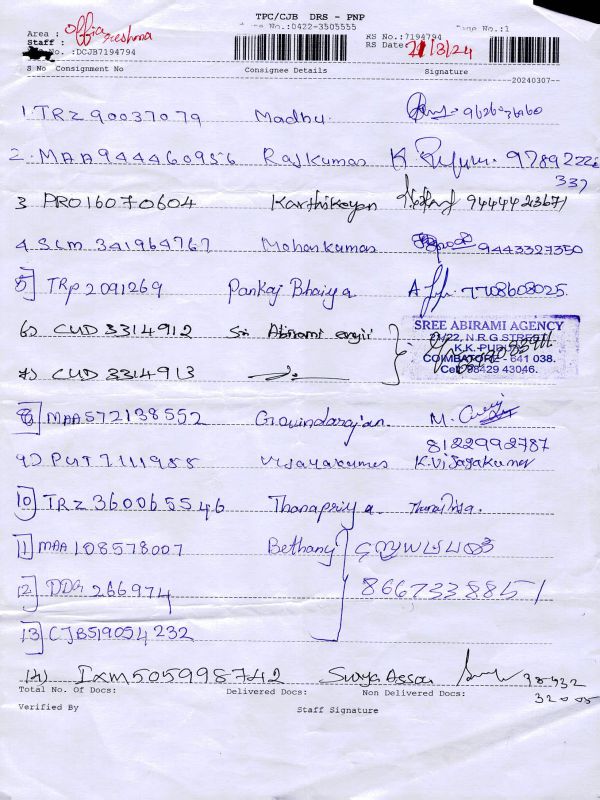 TPC/CJB DRS - PNP
Phone No.:0422-3505555
Page No.:1
Area : Office
Staff : Reshma
RS No.:7194794
RS Date: 21/3/24
No.:DCJB7194794
S No Consignment No Consignee Details Signature
--20240307--
1. TRZ 90037079 Madhu
2. MAA944460956 Rajkumar 9789222
337
3 PRO16070604 Karthikeyan 9444423671
4. SLM 341964767 Mohankumar 9443327350
5) TRP 2091269 Pankaj Bhaiya 7708608025
6) CUD 3314912 Sri Abirami
SREE ABIRAMI AGENCY
21/22, N.R.G STREET
K.K. PUDUR
COIMBATORE - 641 038.
Cell: 98429 43046.
7) CUD 3314913
8) MAA572138552 Govindarajan M.
8122992787
9) PUT 7111988 Vijayakumar K.Vijayakumar
10) TRZ 360065546 Thanapriya Thanapriya.
11) MAA 108578007 Bethany
12) DDG 266974 8667338851
13) CJB519054232
14) IXM505998742 Surya Assoc 98432
32005
Total No. Of Docs: Delivered Docs: Non Delivered Docs:
Verified By Staff Signature